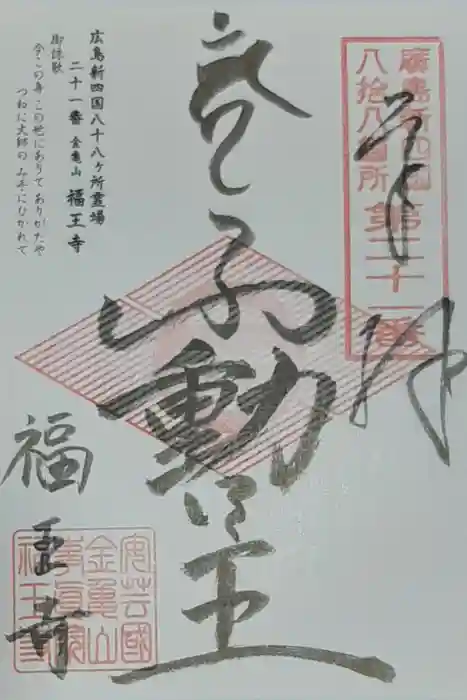 廣島新四國
八拾八箇所 第二十一番
奉拝
不動明王
福王寺
安芸國
金亀山
事真院
福王寺
広島新四国八十八ヶ所霊場
二十一番 金亀山 福王寺
御詠歌
今この身 この世にありて ありがたや
つねに大師の み手にひかれて